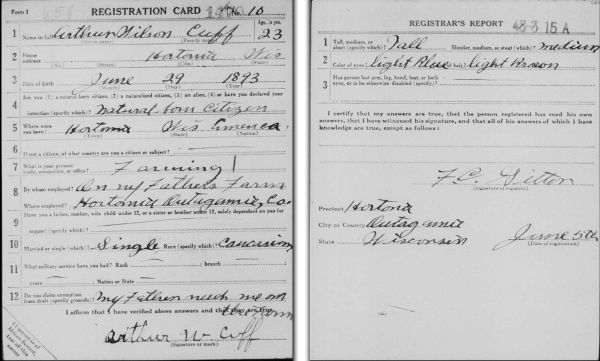 Form 1
REGISTRATION CARD No. 10
Age, in yrs.
1 Name in full Arthur Wilson Cuff 23
(Given name) (Family name)
2 Home address Hortonia Wis
(No.) (Street) (City) (State)
3 Date of birth June 29 1893
(Month) (Day) (Year)
4 Are you (1) a natural-born citizen, (2) a naturalized citizen, (3) an alien, (4) or have you declared your
intention (specify which)? Natural born Citizen
5 Where were you born? Hortonia Wis America
(Town) (State) (Nation)
6 If not a citizen, of what country are you a citizen or subject?
7 What is your present trade, occupation, or office? Farming
8 By whom employed? On my Fathers Farm
Where employed? Hortonia Outagamie, Co.
9 Have you a father, mother, wife, child under 12, or a sister or brother under 12, solely dependent on you for
support (specify which)?
10 Married or single (which)? Single Race (specify which)? Caucasian
11 What military service have you had? Rank ; branch
years ; Nation or State
12 Do you claim exemption from draft (specify grounds)? My Father need me on
the farm
I affirm that I have verified above answers and that they are true.
Arthur W. Cuff
(Signature or mark)
If person is of African descent, tear off this corner
REGISTRAR'S REPORT 48-3 15 A
1 Tall, medium, or short (specify which)? Tall Slender, medium, or stout (which)? medium
2 Color of eyes? Light Blue Color of hair? Light Brown
3 Has person lost arm, leg, hand, foot, or both
eyes, or is he otherwise disabled (specify)?
I certify that my answers are true, that the person registered has read his own
answers, that I have witnessed his signature, and that all of his answers of which I have
knowledge are true, except as follows:
(Signature of registrar)
Precinct Hortonia
City or County Outagamie
State Wisconsin June 5th
(Date of registration)